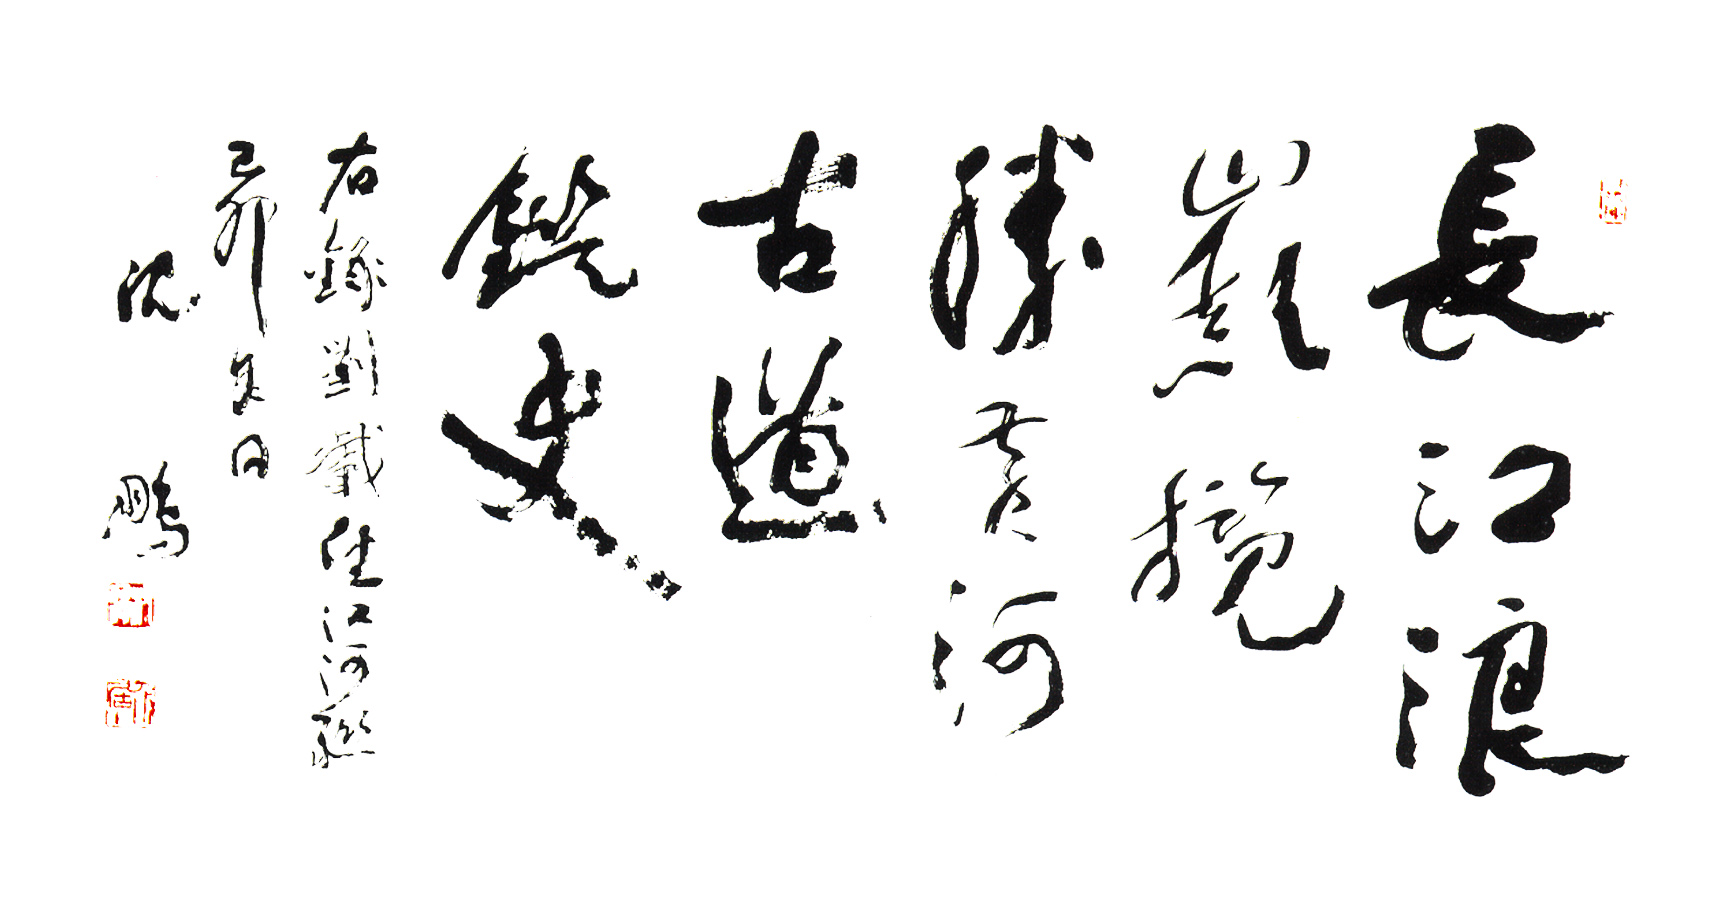 長江浪
巔攬
勝黄河
古道
鑑史
右錄劉江河聯
己卯夏日
沈鵬